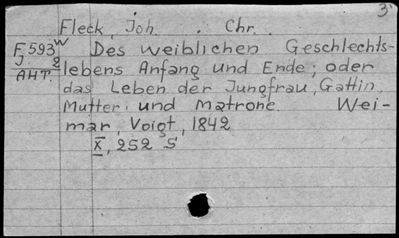 3
Fleck, Joh. Chr.
F 593 W Des weiblichen Geschlechts-
J 2 lebens Anfang und Ende; oder
AHT. das Leben der Jungfrau, Gattin,
Mutter und Matrone. Wei-
mar, Voigt, 1842
X, 252 S